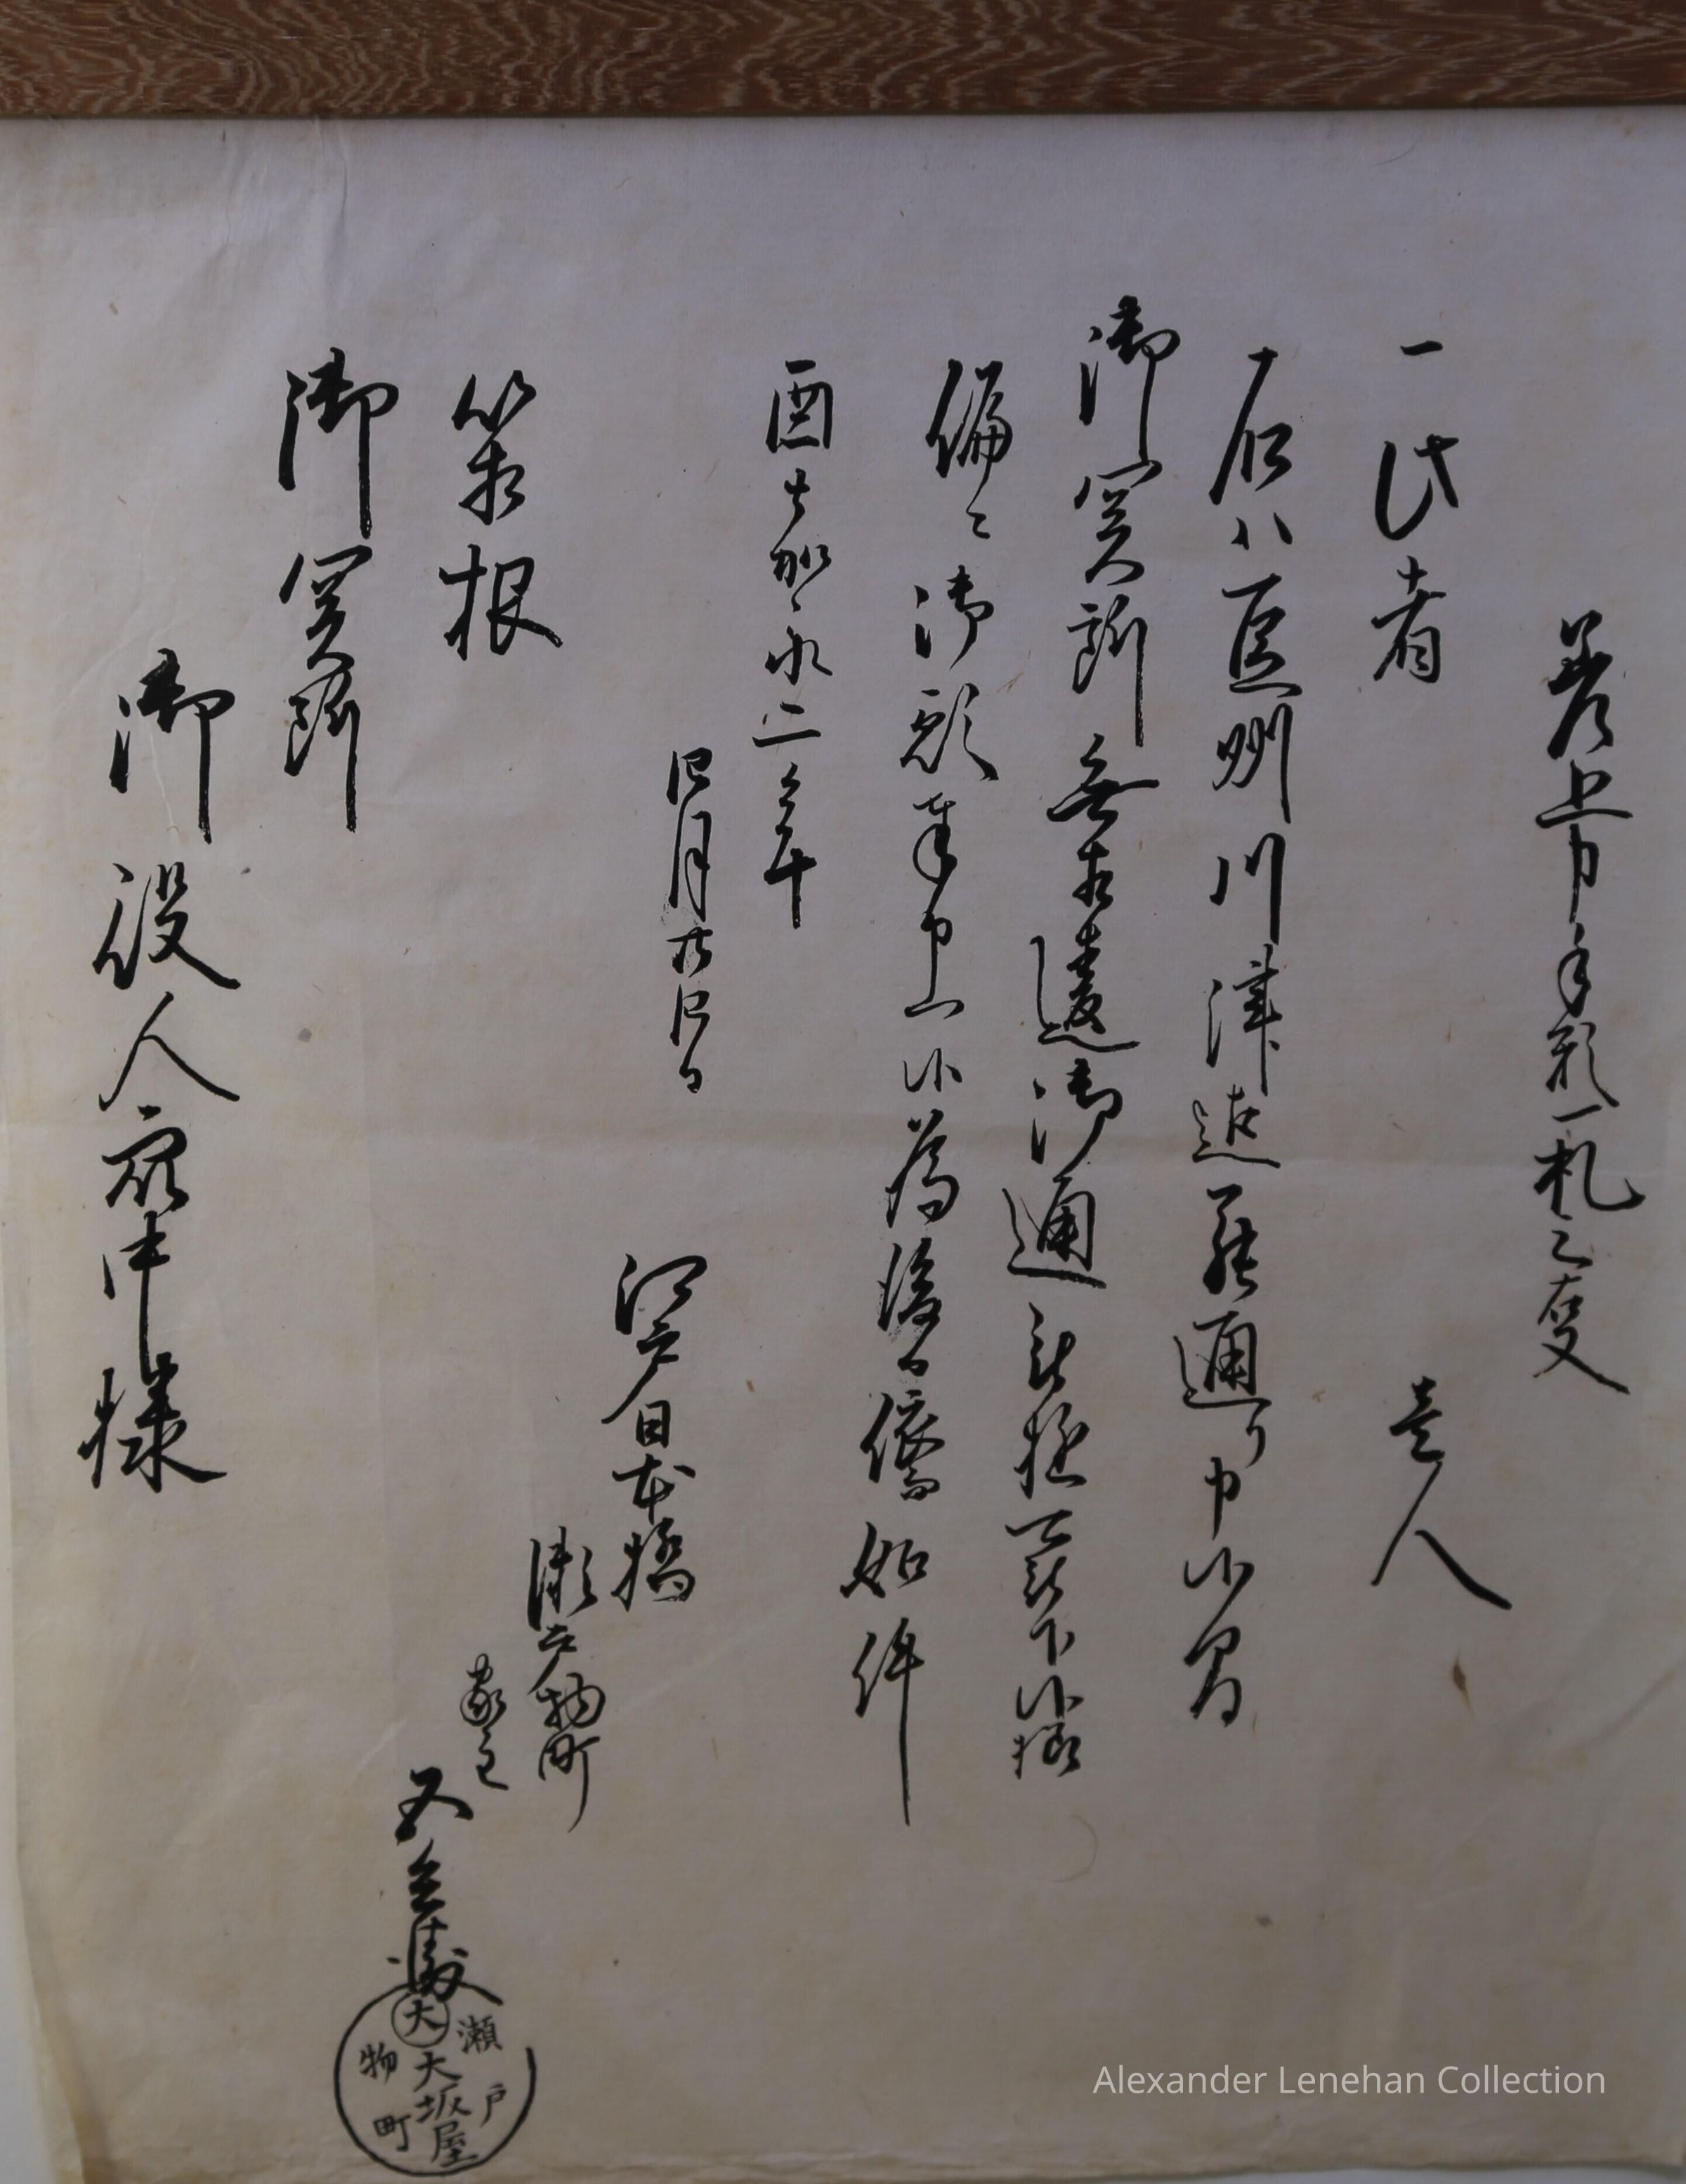 差上申手形一札之事
一此者 壱人
右ハ豆州川津迄罷通り申候間
御関所無相違御通被遊可被下候様
偏ニ御願奉申上候為後日仍如件
酉 嘉永二年
四月廿四日
江戸日本橋
瀬戸物町
家主
五兵衛
大
瀬戸物町
大坂屋
箱根
御関所
御役人衆中様
Alexander Lenehan Collection